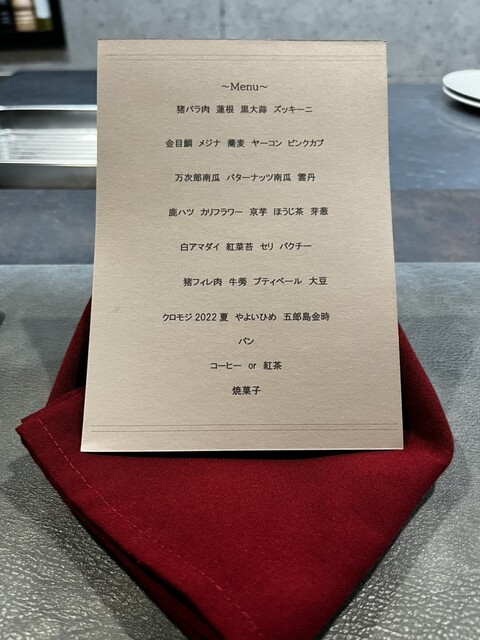 ～Menu～
猪バラ肉 蓮根 黒大蒜 ズッキーニ
金目鯛 メジナ 蕎麦 ヤーコン ピンクカブ
万次郎南瓜 バターナッツ南瓜 雲丹
鹿ハツ カリフラワー 京芋 ほうじ茶 芽葱
白アマダイ 紅菜苔 セリ パクチー
猪フィレ肉 牛蒡 プティベール 大豆
クロモジ2022夏 やよいひめ 五郎島金時
パン
コーヒー or 紅茶
焼菓子